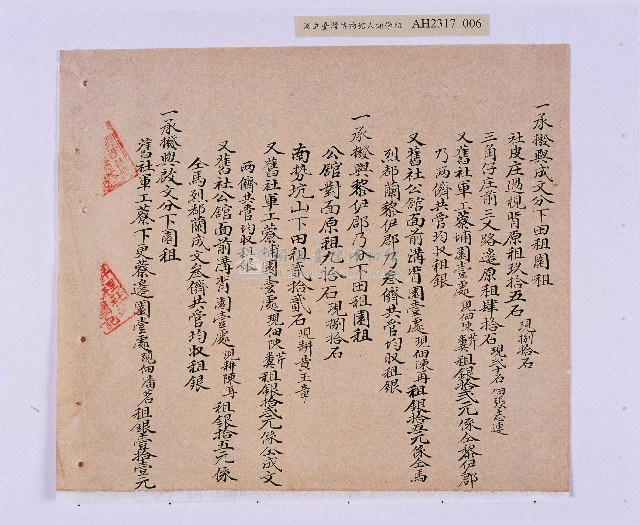 AH2317 006
一承撥與成文分下田租園租
社皮庄過視背原租玖拾五石 現捌拾石
三角仔庄前三叉路邊原租肆拾石 現弍十石佃張志運
又舊社軍工藔埔園壹處現佃陳芹糞租銀拾弍元係仝黎伊郡
乃兩儕共管均收租銀
又舊社公館面前溝背園壹處現佃陳再租銀拾五元係仝馬
烈郡蘭黎伊郡乃叁儕共管均收租銀
一承撥與黎伊郡乃分下田租園租
公館對面原租九拾石 現捌拾石
南勢坑山下田租弍拾弍石 現耕黃王章
又舊社軍工藔背園壹處現佃陳芹糞租銀拾弍元係仝成文
兩儕共管均收租銀
又舊社公館面前溝背園壹處 現耕陳再 租銀拾五元係
仝馬烈郡蘭成文叁儕共管均收租銀
一承撥與改文分下園租
舊社軍工藔下更藔邊園壹處現佃潘茗租銀壹拾壹元